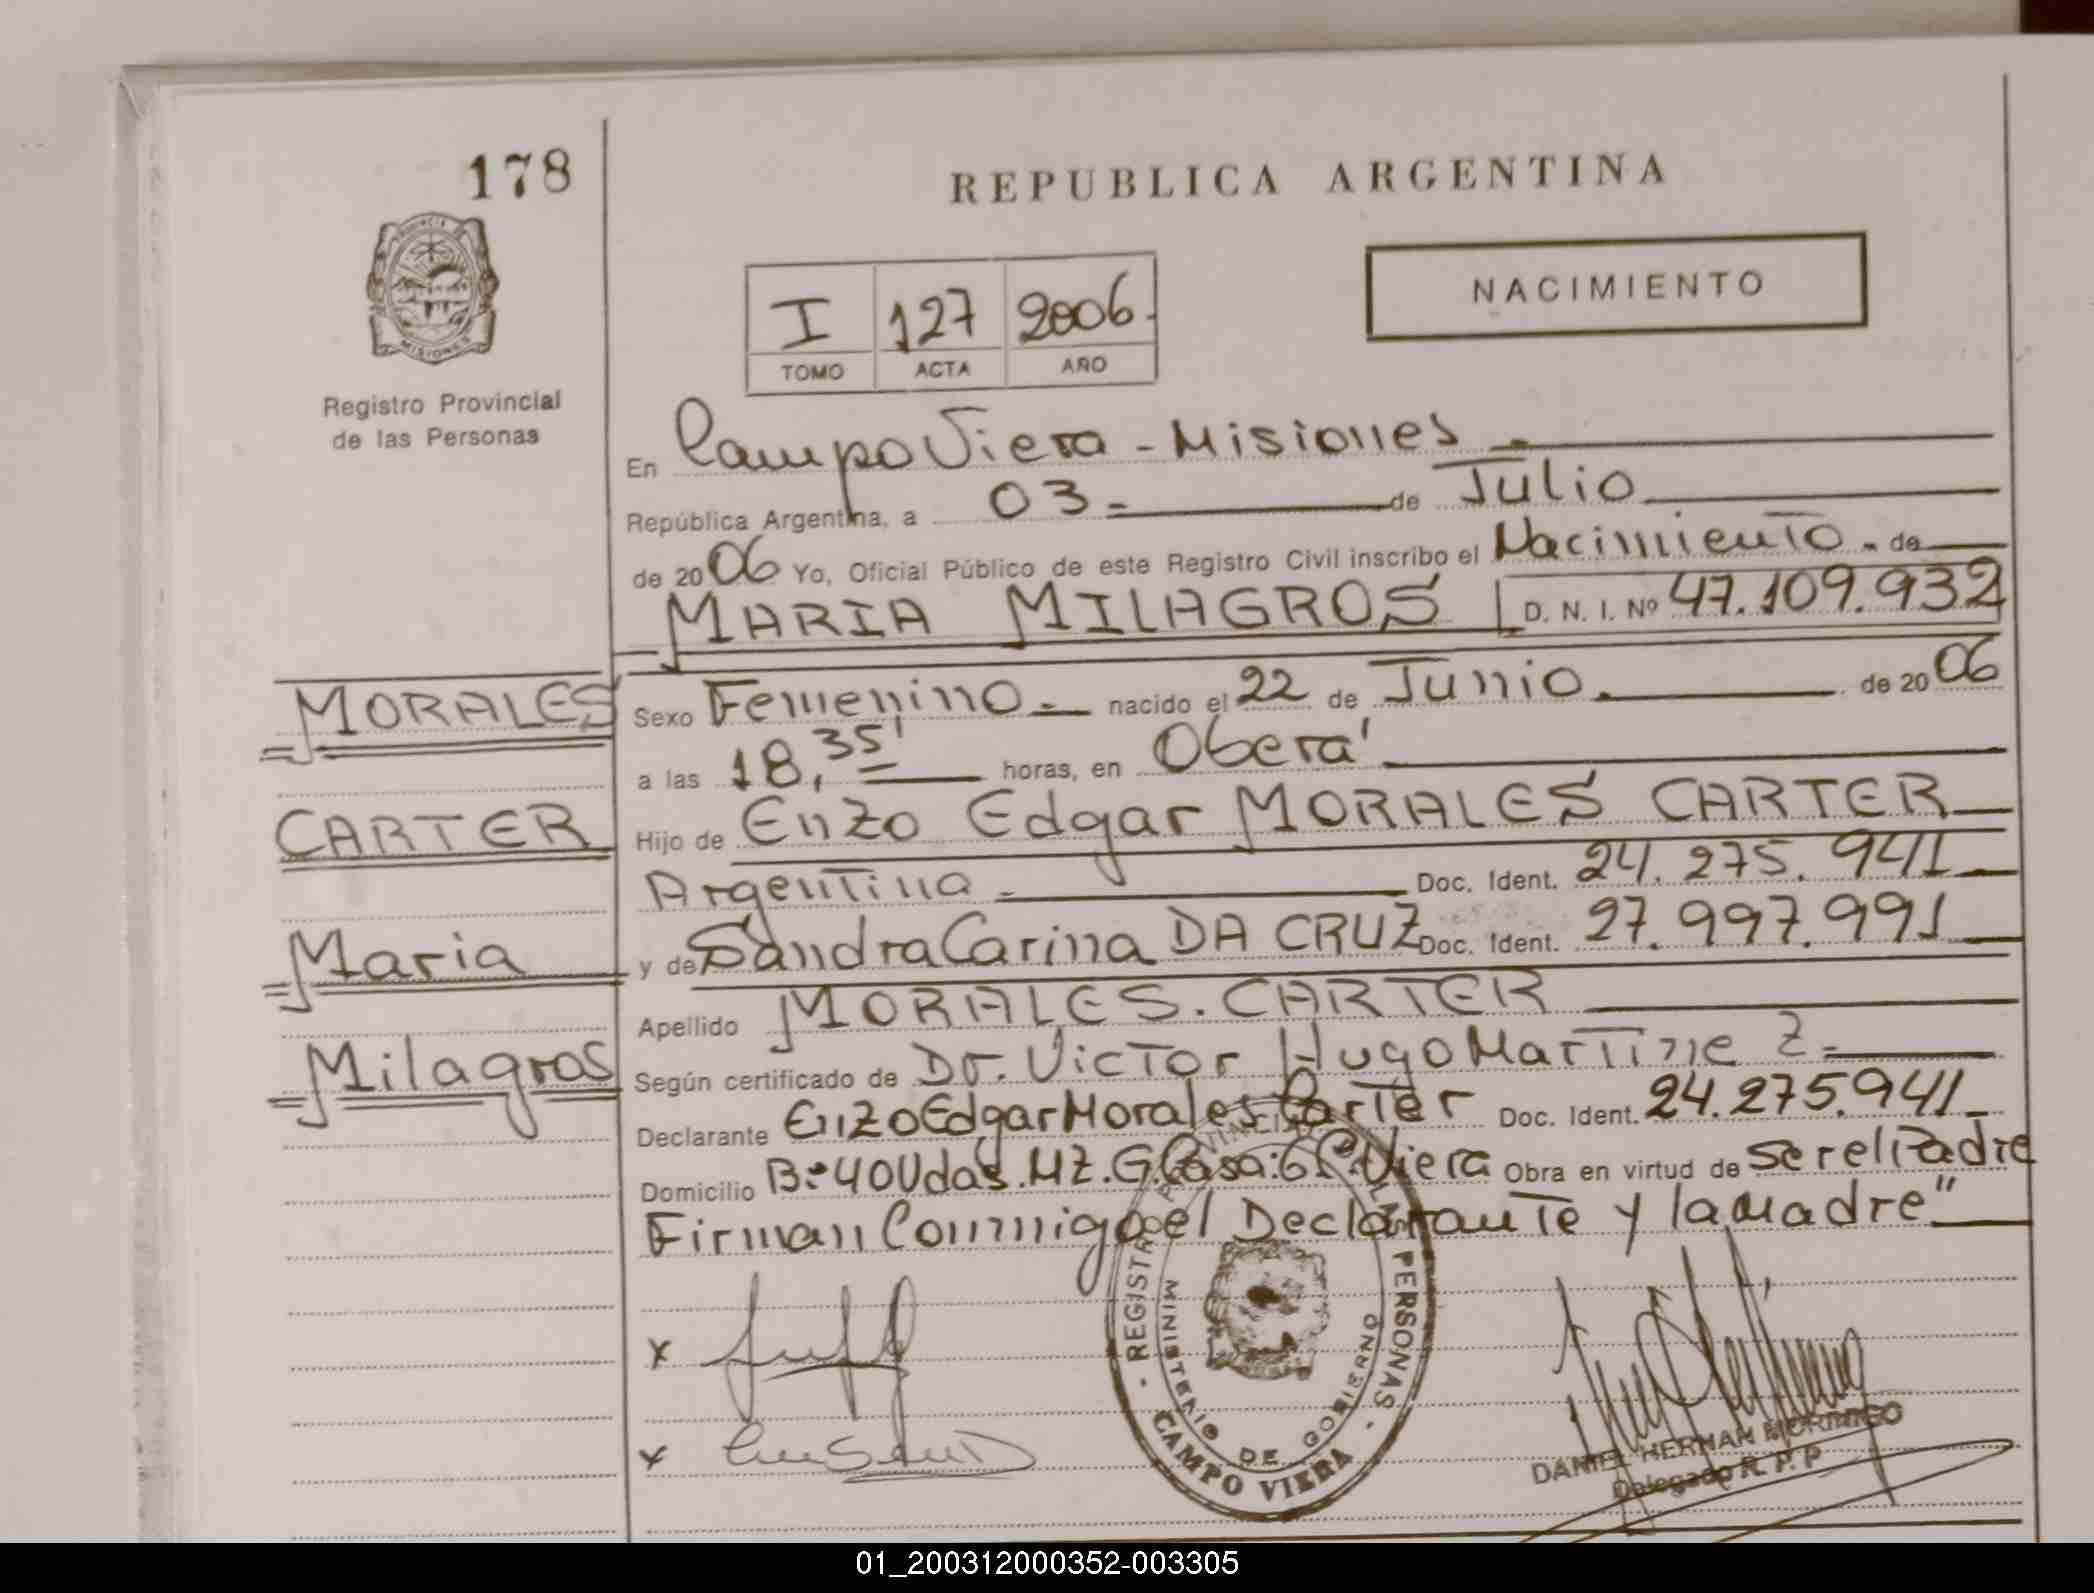 178
REPUBLICA ARGENTINA
PROVINCIA DE
MISIONES
Registro Provincial
de las Personas
I 127 2006.
TOMO ACTA AÑO
NACIMIENTO
En Campo Viera - Misiones.
República Argentina, a 03 de Julio
de 2006 Yo, Oficial Público de este Registro Civil inscribo el Nacimiento. de
MARIA MILAGROS D. N. I. Nº 47.109.932
MORALES
CARTER
Maria
Milagros
Sexo Femenino. nacido el 22 de Junio. de 2006
a las 18,35' horas, en Oberá
Hijo de Enzo Edgar MORALES CARTER
Argentina Doc. Ident. 24.275.941
y de Sandra Carina DA CRUZ Doc. Ident. 27.997.991
Apellido MORALES. CARTER
Según certificado de Dr. Victor Hugo Martinez
Declarante Enzo Edgar Morales Carter Doc. Ident. 24.275.941
Domicilio B:40Vdas.MZ.G.Casa:6 C.Viera Obra en virtud de ser el Padre
Firman Conmigo el Declarante y la Madre"
x
x
REGISTRO PROVINCIAL PERSONAS
MINISTERIO DE GOBIERNO
CAMPO VIERA
DANIEL HERNAN MORINIGO
Delegado R. P. P
01_200312000352-003305